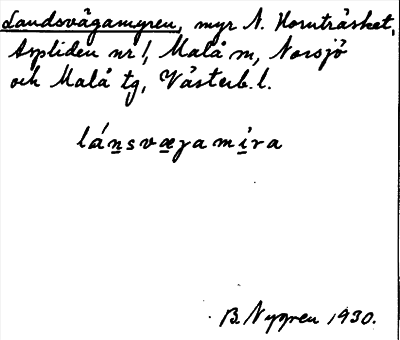 Landsvägamyren, myr N. Hornträsket,
Aspliden nr 1, Malå sn, Norsjö
och Malå tg, Västerb. l.
lánsvægamira
B. Nygren 1930.